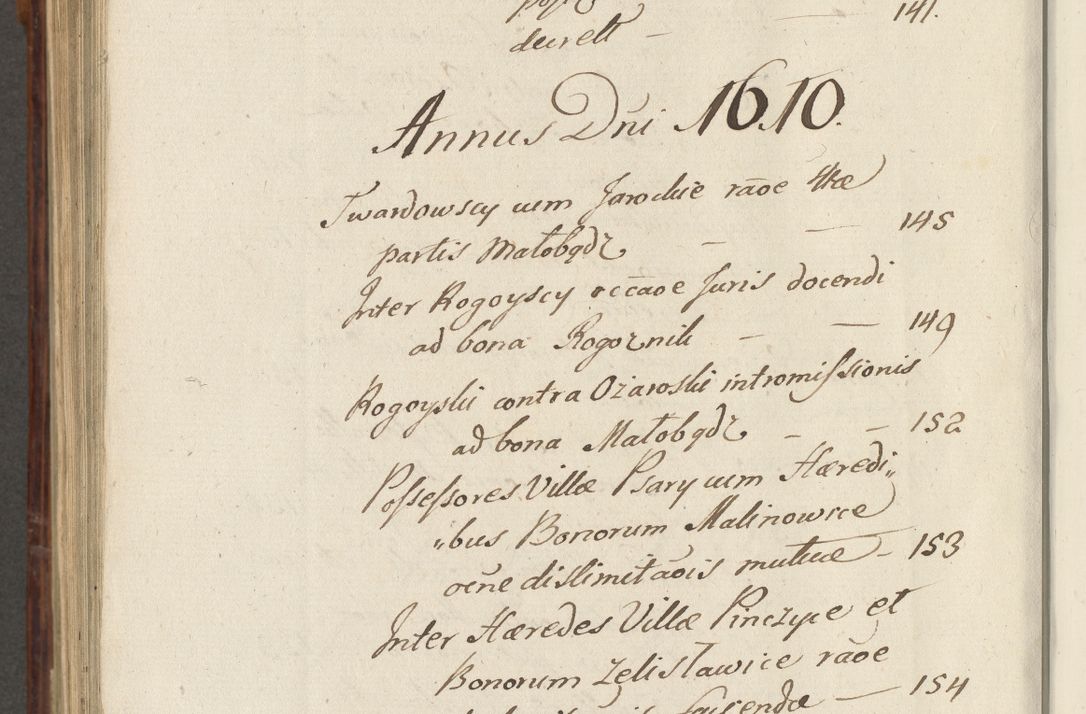 141.
decrett –
Annus Dn̄i 1610.
Twardowscy cum Jarockie rāoe 4tæ
partis Małobądz – — 145
Inter Rogoyscy occāoe Juris docendi
ad bona Rogoznik – — 149
Rogoyski contra Ożaroski intromissionis
ad bona Małobądz – – 152
Possessores Villæ Psary cum Hæredi„
„bus Bonorum Malinowice
oc̄ne dislimitāois mutuæ – 153
Inter Hæredes Villæ Pinczyce et
Bonorum Zelisławice rāoe
faciendæ — 154